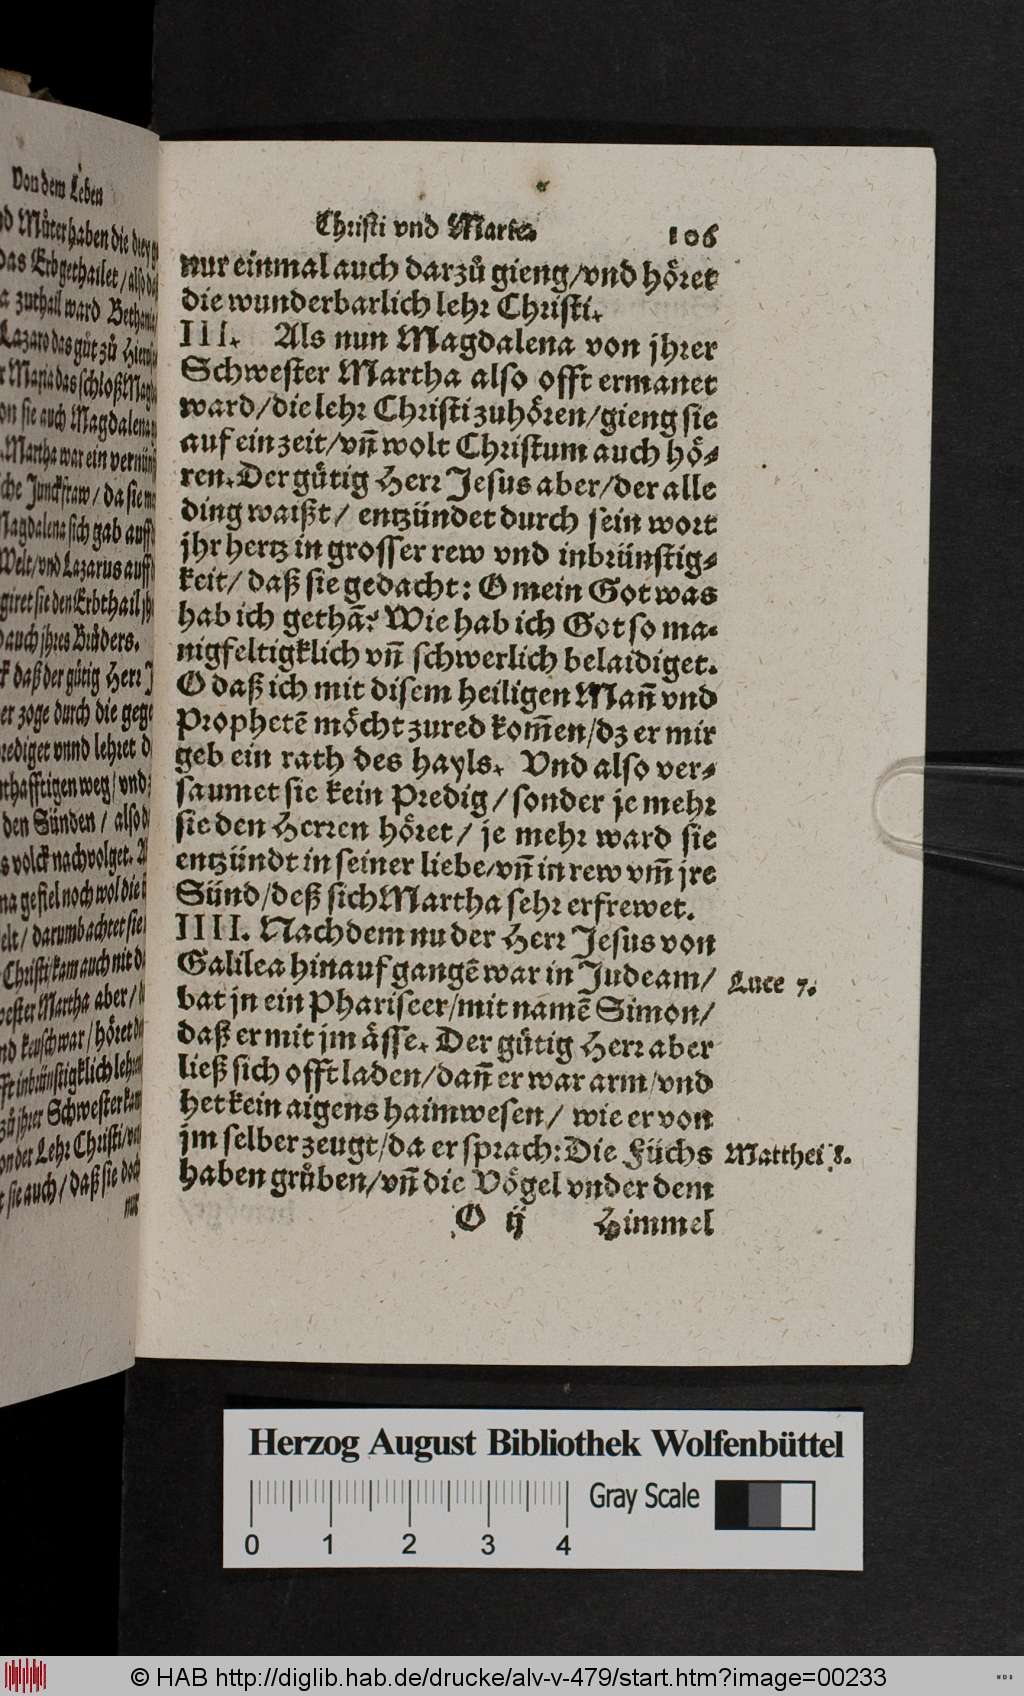 Von dem Leben
Müter haben die drey
das Erb gethailet / also
zuthail ward Bethania
Lazaro das gůt zů
Maria das schloß
sie auch Magdalena
Martha war ein
Junckfraw / da sie
Magdalena sich gab auff
Welt / vnd Lazarus auff
sie den Erbthail
auch jhres Brůders.
daß der gůtig Herr
er zoge durch die
vnnd lehret
weg / vnd
den Sünden / also
volck nachvolget.
gefiel noch wol die
darumb achtet sie
Christi / kam auch nit
Martha aber /
keusch war / höret
inbrünstigklich
zů jhrer Schwester
von der Lehr Christi /
sie auch / daß sie doch
nur
Christi vnd Marie. 106
nur einmal auch darzů gieng / vnd höret
die wunderbarlich lehr Christi.
III. Als nun Magdalena von jhrer
Schwester Martha also offt ermanet
ward / die lehr Christi zuhören / gieng sie
auf ein zeit / vñ wolt Christum auch hö⸗
ren. Der gůtig Herr Jesus aber / der alle
ding waißt / entzündet durch sein wort
jhr hertz in grosser rew vnd inbrünstig⸗
keit / daß sie gedacht: O mein Got was
hab ich gethã? Wie hab ich Got so ma⸗
nigfeltigklich vñ schwerlich belaidiget.
O daß ich mit disem heiligen Mañ vnd
Prophetẽ möcht zured kom̃en / dz er mir
geb ein rath des hayls. Vnd also ver⸗
saumet sie kein Predig / sonder je mehr
sie den Herren höret / je mehr ward sie
entzündt in seiner liebe / vñ in rew vm̃ jre
Sünd / deß sich Martha sehr erfrewet.
IIII. Nachdem nu der Herr Jesus von
Galilea hinauf gangẽ war in Judeam /
Luce 7.
bat jn ein Phariseer / mit namẽ Simon /
daß er mit jm ässe. Der gůtig Herr aber
ließ sich offt laden / dañ er war arm / vnd
het kein aigens haimwesen / wie er von
jm selber zeugt / da er sprach: Die Füchs
Matthei 8.
haben grůben / vñ die Vögel vnder dem
O ij Himmel
Herzog August Bibliothek Wolfenbüttel
Gray Scale
0 1 2 3 4
© HAB http://diglib.hab.de/drucke/alv-v-479/start.htm?image=00233